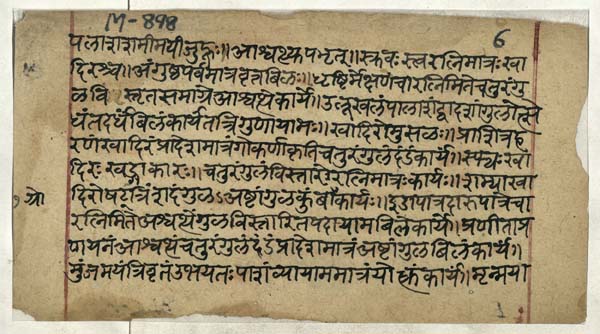 M-898
6
पलाशशमीमयीजुहूः॥आश्वत्थ्युपभृत्॥स्रुवः स्वरत्निमात्रः खा
दिरश्च॥अंगुष्ठपर्वमात्रवृत्तबिलः॥धृष्टिर्मेक्षणंचारत्निमितेचतुरंगु
लवि स्तृतसमाग्रे आश्वत्थेकार्ये॥उलूखलंपालाशंद्वादशांगुलोत्से
धंतदर्धंबिलंकार्यंतत्रिगुणायामः॥खादिरोमुसलः॥प्राशित्रह
रणंखादिरंप्रादेशमात्रंगोकर्णाकृतिचतुरंगुलंदंडंकार्यं॥स्फ्यःखा
दिरः खड्गाकारः॥चतुरंगुलविस्तारोरत्निमात्रःकार्यः॥शम्याखा
दिरीषट्त्रिंशदंगुलाऽअष्टांगुलकुंबाकार्या॥इडापात्रदारुपात्रिचा
रत्निमितेअश्वत्थेंगुलविस्तारितपदायामबिलेकार्ये॥प्रणीताप्र
णयनंआश्वत्थंचतुरंगुलंदंडंप्रादेशमात्रंअष्टांगुलबिलंकार्यं॥
मुंजमयंत्रिवृतंउभयतःपाशंव्यायाममात्रंयोक्त्रंकार्यं॥मृन्मया
1